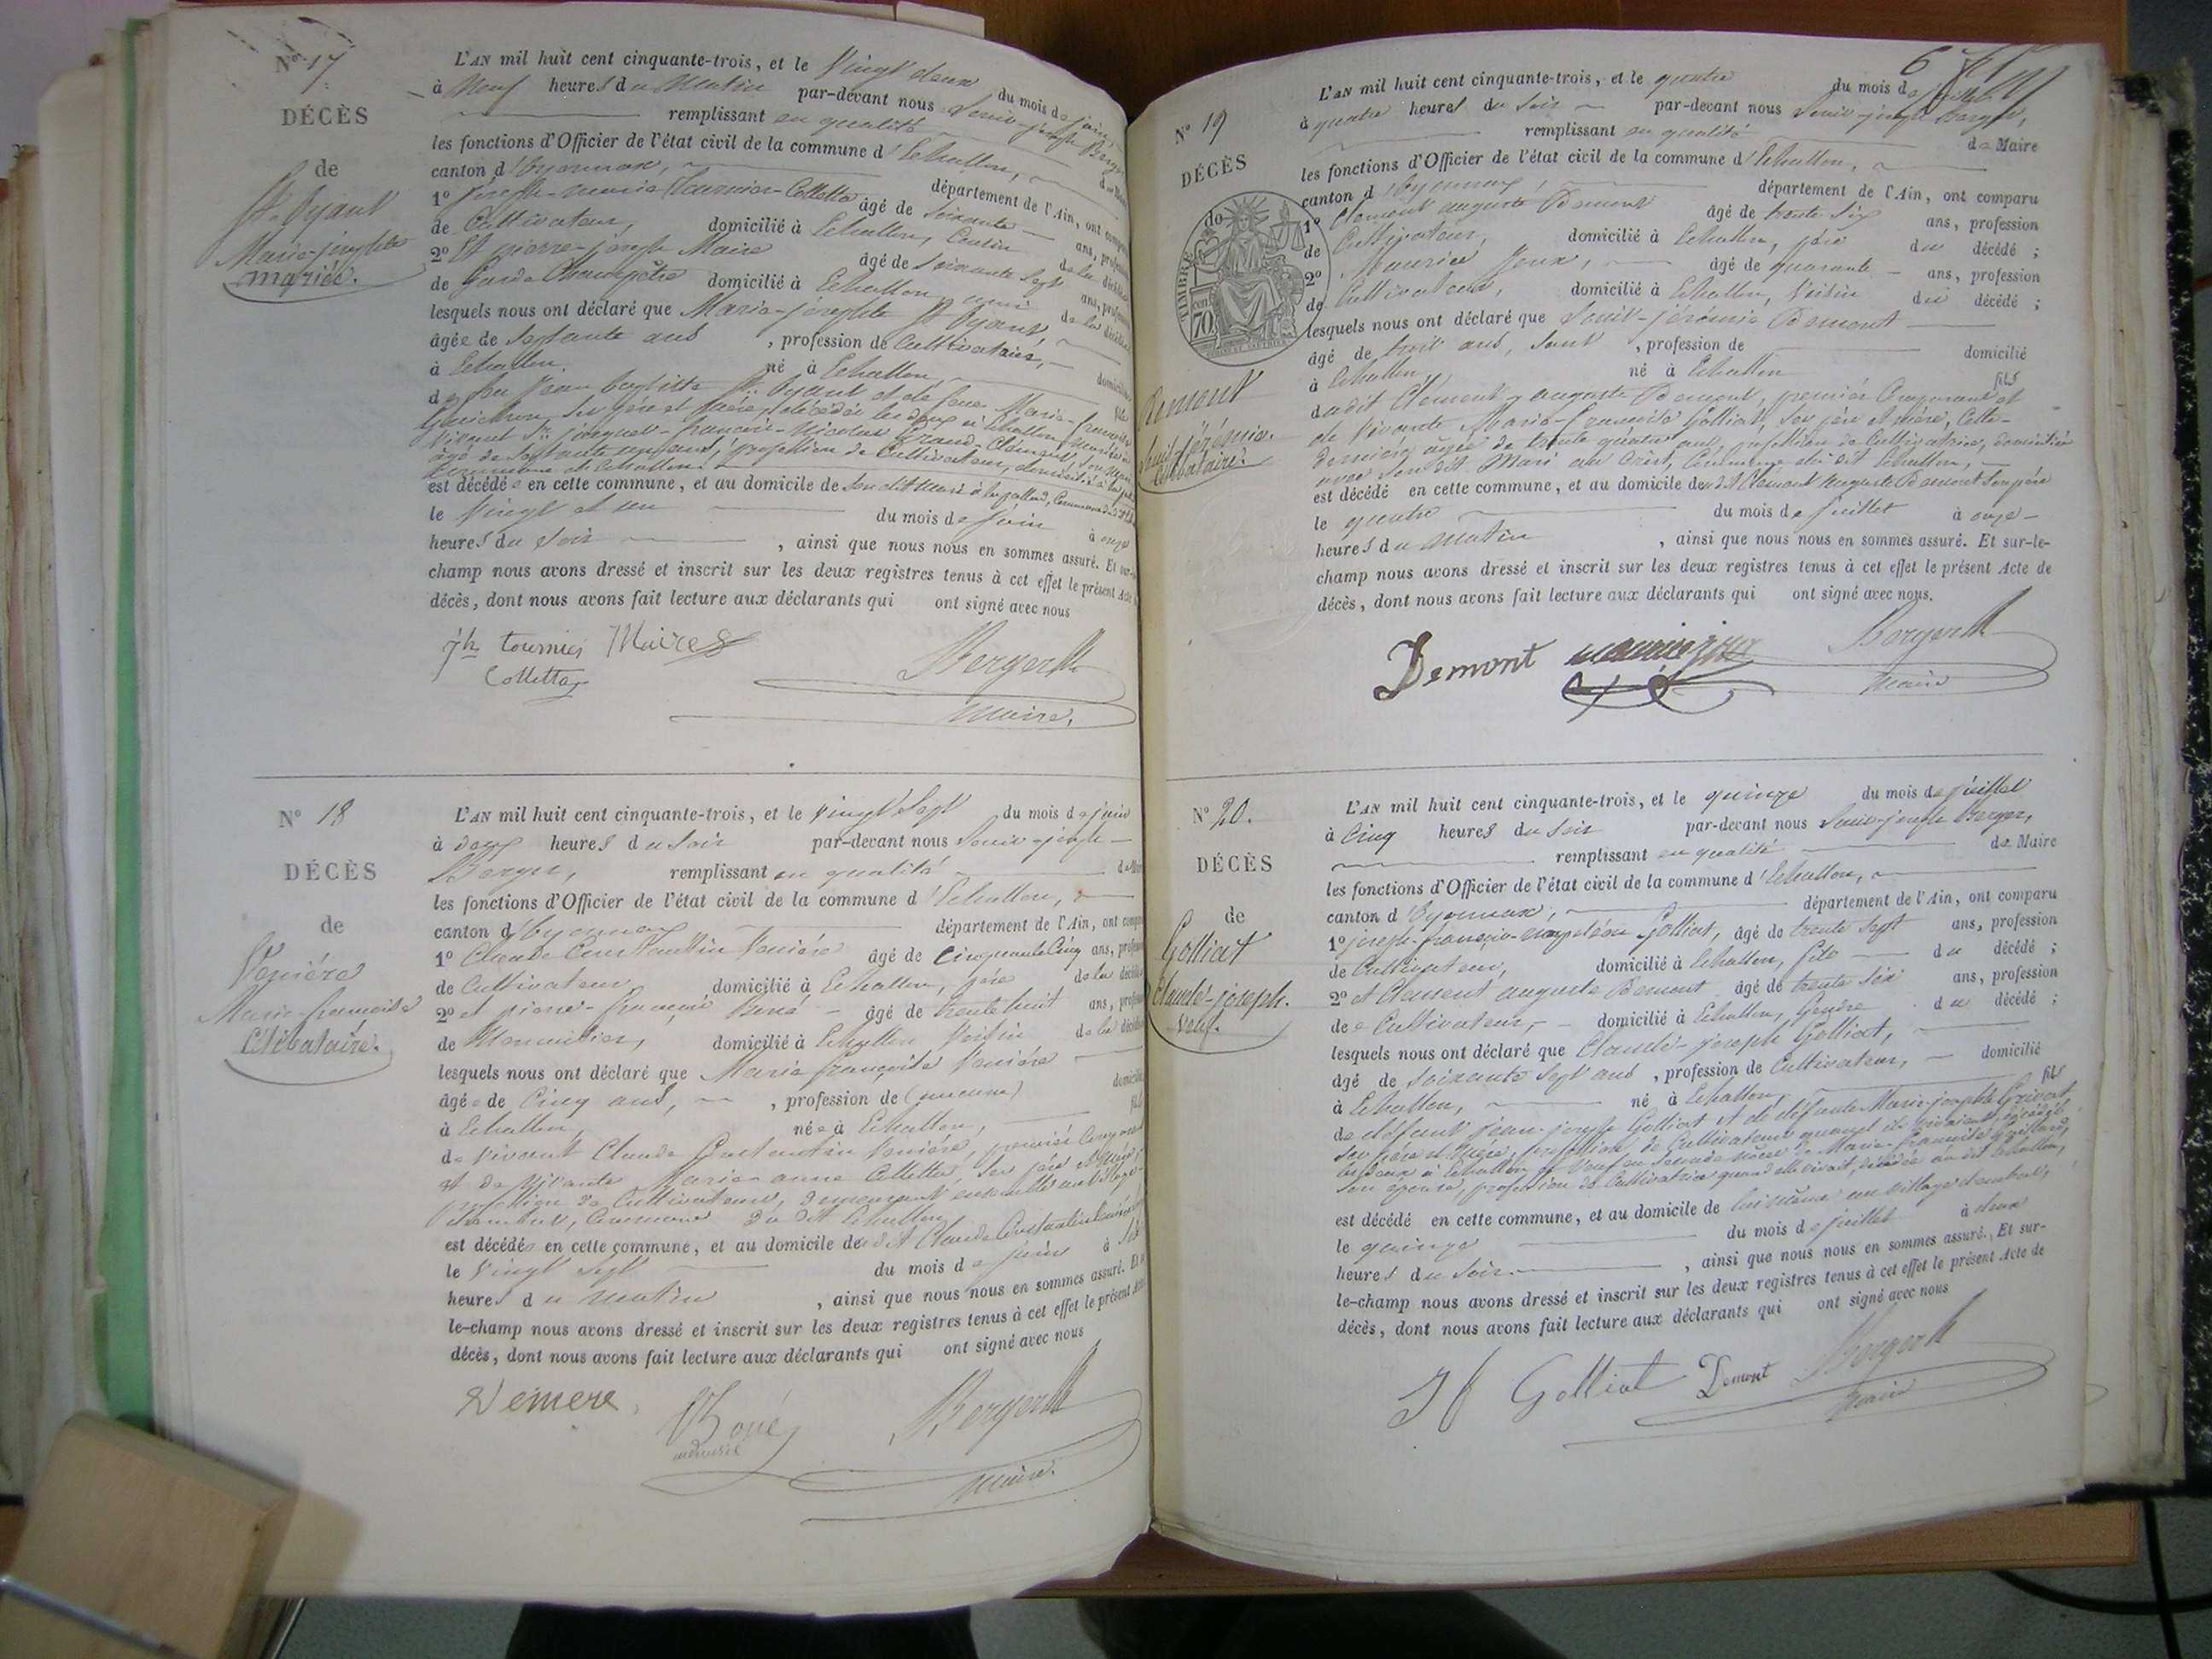 N° 17
DÉCÈS
de
St. Oyant
Marie-josephte
mariée.
L'AN mil huit cent cinquante-trois, et le Vingt deux du mois de juin
à Neuf heures du Matin par-devant nous Louis-joseph Berger
remplissant en qualité de Maire
les fonctions d'Officier de l'état civil de la commune d'Echallon,
canton d'Oyonnax, département de l'Ain, ont comparu
1° joseph-marie Tournier-Colletta âgé de soixante ans, profession
de Cultivateur, domicilié à Echallon, Cousin de la décédée
2° Et pierre-joseph Maire âgé de soixante sept ans, profession
de Garde Champêtre domicilié à Echallon, ami de la décédée
lesquels nous ont déclaré que Marie-josephte St Oyant,
âgée de septante ans, profession de Cultivatrice, domiciliée
à Echallon, né à Echallon, fille
de feu Jean baptiste St. Oyant et de feue Marie-françoise
Guichon, ses père et mère, décédés les deux à Echallon,
Vivant Sr. jacques-françois-Nicolas Grand-Clément, son mari
âgé de septante ans, profession de Cultivateur, domicilié à
commune d'Echallon
est décédée en cette commune, et au domicile de son dit mari
le Vingt et un du mois de juin à onze
heures du soir, ainsi que nous nous en sommes assuré. Et sur-le-
champ nous avons dressé et inscrit sur les deux registres tenus à cet effet le présent Acte de
décès, dont nous avons fait lecture aux déclarants qui ont signé avec nous
jh tournier Maire
Colletta
Berger
Maire.
N° 18
DÉCÈS
de
Venière
Marie-françoise
Célibataire.
L'AN mil huit cent cinquante-trois, et le Vingt Sept du mois de juin
à deux heures du soir par-devant nous Louis-joseph
Berger, remplissant en qualité de Maire
les fonctions d'Officier de l'état civil de la commune d'Echallon,
canton d'Oyonnax département de l'Ain, ont comparu
1° Claude Constantin Venière âgé de cinquante Cinq ans, profession
de Cultivateur domicilié à Echallon, père de la décédée
2° et pierre-françois Boué âgé de trente huit ans, profession
de Menuisier, domicilié à Echallon Voisin de la décédée
lesquels nous ont déclaré que Marie françoise Venière
âgée de Cinq ans, profession de (aucune) domiciliée
à Echallon née à Echallon, fille
de Vivant Claude Constantin Venière, premier Comparant
et de Vivante Marie-anne Colletta, ses père et mère,
profession de Cultivateurs, demeurant ensemble au Village
commune du dit Echallon,
est décédée en cette commune, et au domicile du dit Claude Constantin Venière
le Vingt Sept du mois de juin à Six
heures du Matin, ainsi que nous nous en sommes assuré. Et sur-
le-champ nous avons dressé et inscrit sur les deux registres tenus à cet effet le présent Acte de
décès, dont nous avons fait lecture aux déclarants qui ont signé avec nous
Veniere
Boué
menuisié
Berger
Maire.
6
N° 19
DÉCÈS
de
TIMBRE
70
Demont
Louis-jérémie.
Célibataire.
L'AN mil huit cent cinquante-trois, et le quatre du mois de juillet
à quatre heures du soir par-devant nous Louis-joseph Berger,
remplissant en qualité de Maire
les fonctions d'Officier de l'état civil de la commune d'Echallon,
canton d'Oyonnax, département de l'Ain, ont comparu
1° Clément auguste Demont âgé de trente six ans, profession
de Cultivateur, domicilié à Echallon, père du décédé ;
2° Maurice Joux, âgé de quarante ans, profession
de Cultivateur, domicilié à Echallon, Voisin du décédé ;
lesquels nous ont déclaré que Louis-jérémie Demont
âgé de trois ans, sans, profession de domicilié
à Echallon, né à Echallon fils
dudit Clément-auguste Demont, premier Comparant et
de Vivante Marie-françoise Golliat, ses père et mère, Cette-
Dernière âgée de trente quatre ans, profession de Cultivatrice, domiciliée
avec son dit Mari au Crêt, Commune du dit Echallon,
est décédé en cette commune, et au domicile du dit Clément auguste Demont son père
le quatre du mois de juillet à onze
heures du Matin, ainsi que nous nous en sommes assuré. Et sur-le-
champ nous avons dressé et inscrit sur les deux registres tenus à cet effet le présent Acte de
décès, dont nous avons fait lecture aux déclarants qui ont signé avec nous.
Demont maurice joux Berger
Maire
N° 20.
DÉCÈS
de
Golliat
Claude-joseph.
Veuf.
L'AN mil huit cent cinquante-trois, et le quinze du mois de juillet
à Cinq heures du soir par-devant nous Louis-joseph Berger,
remplissant en qualité de Maire
les fonctions d'Officier de l'état civil de la commune d'Echallon,
canton d'Oyonnax, département de l'Ain, ont comparu
1° joseph-françois-napoléon Golliat, âgé de trente sept ans, profession
de Cultivateur, domicilié à Echallon, fils du décédé ;
2° et Clément auguste Demont âgé de trente six ans, profession
de Cultivateur, domicilié à Echallon, Gendre du décédé ;
lesquels nous ont déclaré que Claude-joseph Golliat,
âgé de soixante Sept ans, profession de Cultivateur, domicilié
à Echallon, né à Echallon, fils
de défunt jean-joseph Golliat et de défunte Marie-josephte Grivat,
ses père et mère, profession de Cultivateurs quand ils vivaient, décédés
les deux à Echallon, et Veuf en seconde noce de Marie-françoise
son épouse, profession de Cultivatrice quand elle vivait, décédée au dit Echallon,
est décédé en cette commune, et au domicile de lui même au village
le quinze du mois de juillet à deux
heures du soir, ainsi que nous nous en sommes assuré. Et sur-
le-champ nous avons dressé et inscrit sur les deux registres tenus à cet effet le présent Acte de
décès, dont nous avons fait lecture aux déclarants qui ont signé avec nous
Golliat Demont Berger
Maire